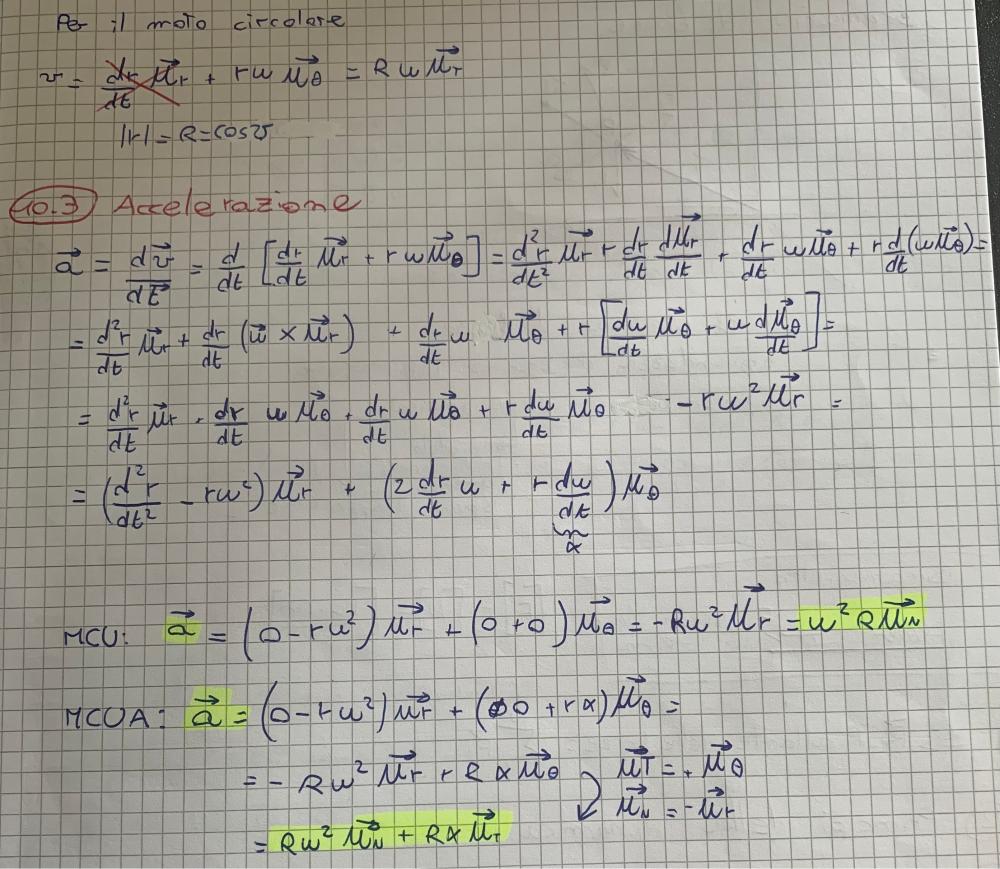 Per il moto circolare
v = dr/dt μ⃗r + rω μ⃗θ = R ω μ⃗r
|r| = R = cos v
10.3 Accelerazione
a⃗ = dv⃗/dt = d/dt [dr/dt μ⃗r + r ω μ⃗θ] = d²r/dt² μ⃗r + dr/dt dμ⃗r/dt + dr/dt ω μ⃗θ + r d/dt (ω μ⃗θ) =
= d²r/dt μ⃗r + dr/dt (ω⃗ × μ⃗r) + dr/dt ω μ⃗θ + r [dω/dt μ⃗θ + ω dμ⃗θ/dt] =
= d²r/dt μ⃗r + dr/dt ω μ⃗θ + dr/dt ω μ⃗θ + r dω/dt μ⃗θ - rω² μ⃗r =
= (d²r/dt² - rω²) μ⃗r + (2 dr/dt ω + r dω/dt) μ⃗θ
α
MCU: a⃗ = (0 - rω²) μ⃗r + (0 + 0) μ⃗θ = -Rω² μ⃗r = ω² R μ⃗N
MCUA: a⃗ = (0 - rω²) μ⃗r + (0 + rα) μ⃗θ =
= - Rω² μ⃗r + R α μ⃗θ μ⃗T = + μ⃗θ
μ⃗N = - μ⃗r
= Rω² μ⃗N + Rα μ⃗T